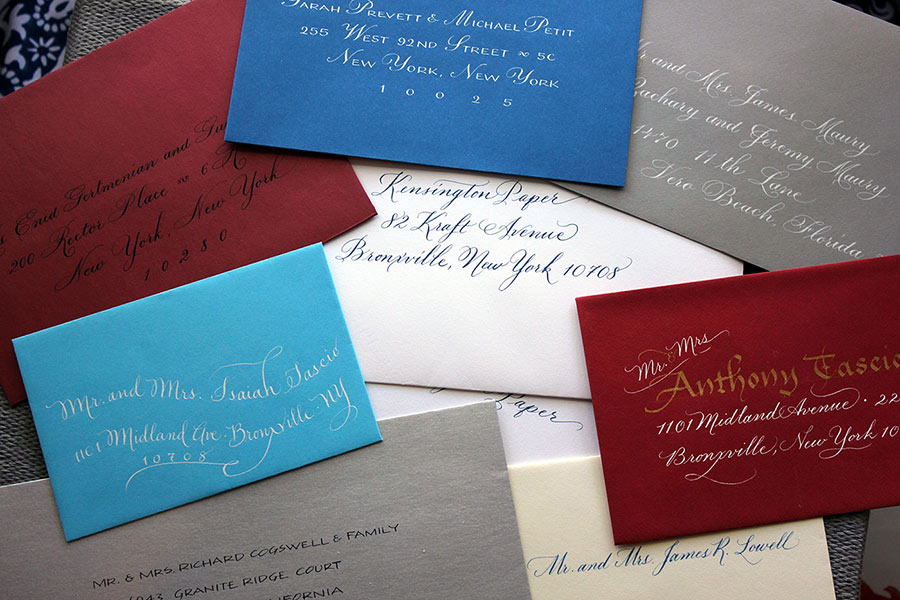 Sarah Prevett & Michael Petit
255 West 92nd Street ∞ 5C
New York, New York
10025
Mr and Mrs. James Maury
Zachary and Jeremy Maury
1470 11th Lane
Vero Beach, Florida
Enid Gertmenian and
200 Rector Place ∞ 6
New York, New York
10280
Kensington Paper
82 Kraft Avenue
Bronxville, New York 10708
Mr. and Mrs. Isaiah Tascio
1101 Midland Ave. Bronxville · NY
10708
Mr. & Mrs.
Anthony Tascio
1101 Midland Avenue · 22
Bronxville, New York 10
Paper
Mr. & Mrs. Richard Cogswell & Family
6943 Granite Ridge Court
California
Mr. and Mrs. James R. Lowell